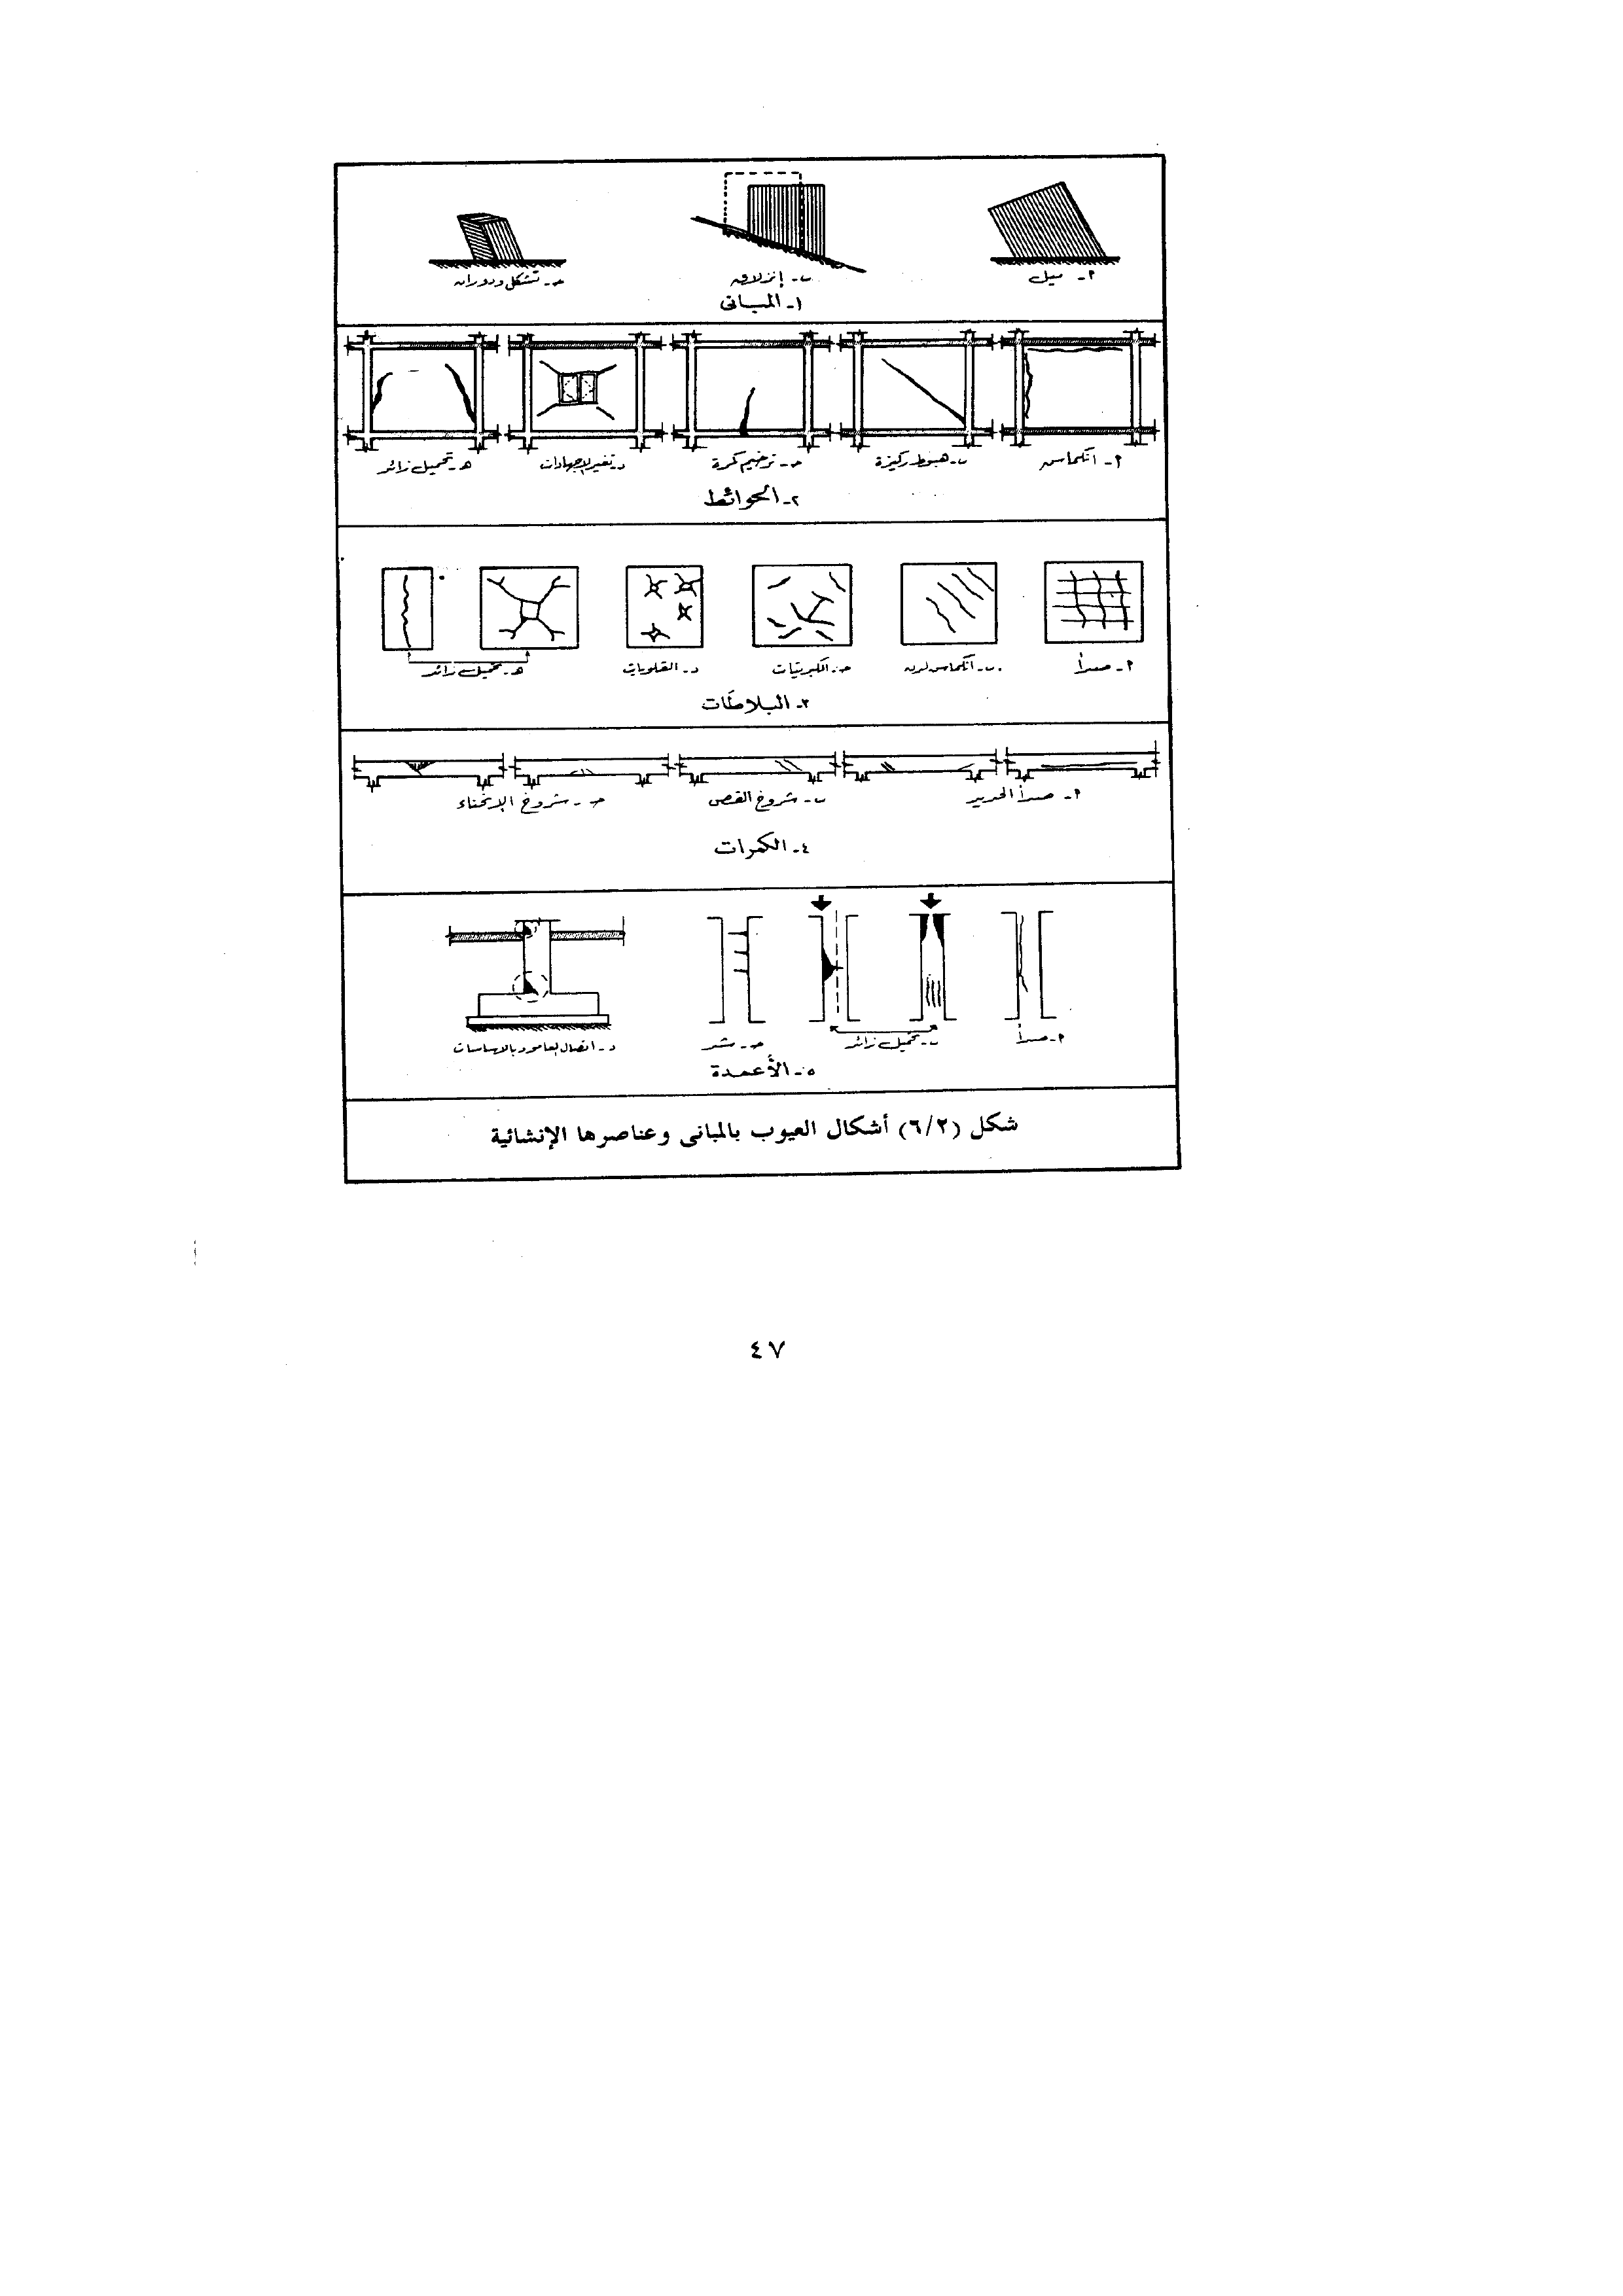 أ - ميل
ب - إنزلاق
ح - تشكل ودوران
١ - المبانى
أ - انكماش
ب - هبوط ركيزة
ح - ترخيم كمرة
د - تغير الإجهادات
هـ - تحميل زائد
٢ - الحوائط
أ - صدأ
ب - انكماش لدن
ح - الكبريتات
د - القلويات
هـ - تحميل زائد
٣ - البلاطات
أ - صدأ الحديد
ب - شروخ القص
ح - شروخ الإنحناء
٤ - الكمرات
أ - صدأ
ب - تحميل زائد
ح - شد
د - اتصال العامود بالاساسات
٥ - الأعمدة
شكل (٦/٢) أشكال العيوب بالمبانى وعناصرها الإنشائية
٤٧